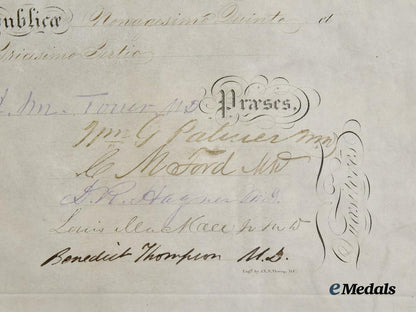 ublicæ Nonagesimo Quinto et
Tricesimo Tertio
Toner M.D. Præses,
Wm G Palmer MD
C M Ford MD
D. R. Hagner M.D.
Louis Mackall Jr M D
Benedict Thompson M.D.
eMedals